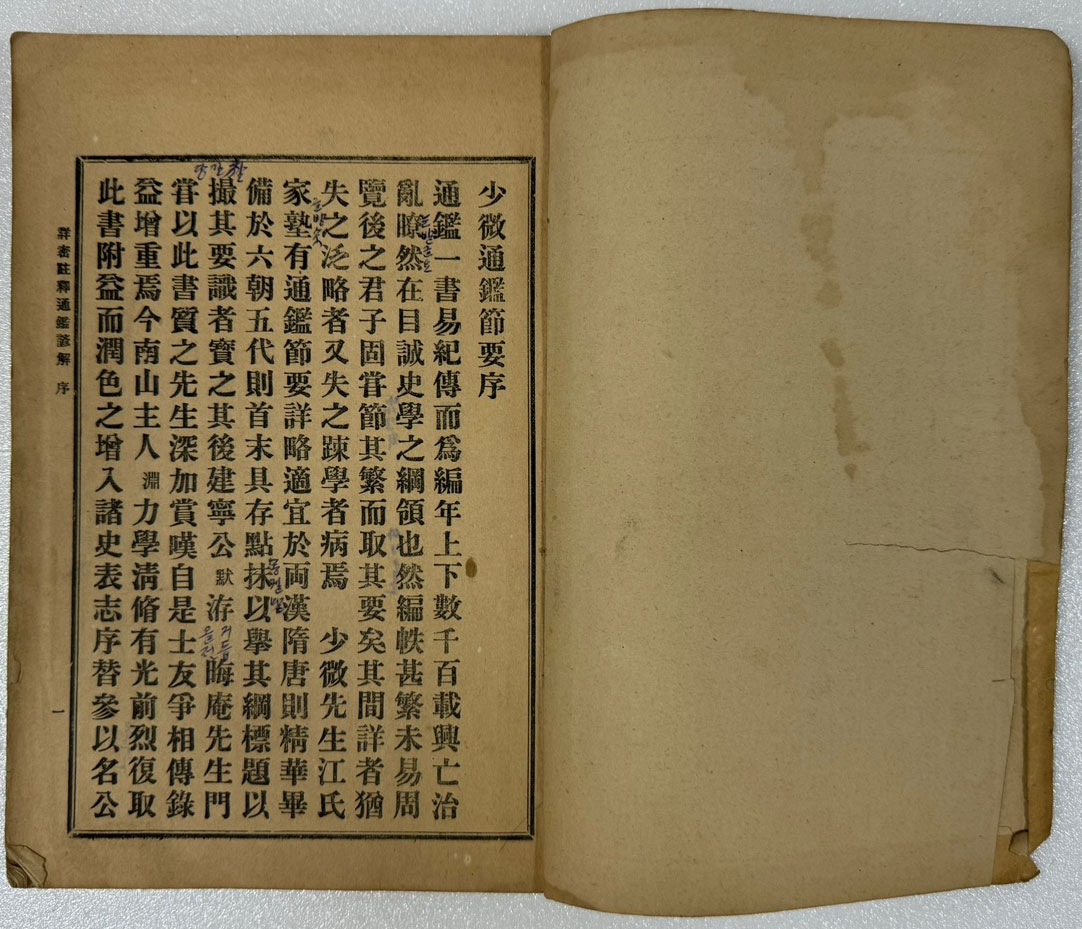 少微通鑑節要序
通鑑一書易紀傳而爲編年上下數千百載興亡治
亂瞭然在目誠史學之綱領也然編帙甚繁未易周
覽後之君子固甞節其繁而取其要矣其間詳者猶
失之泛略者又失之踈學者病焉　少微先生江氏
家塾有通鑑節要詳略適宜於両漢隋唐則精華畢
備於六朝五代則首末具存點抹以擧其綱標題以
撮其要識者寶之其後建寧公默洊晦庵先生門
甞以此書質之先生深加賞嘆自是士友爭相傳錄
益增重焉今南山主人淵力學淸脩有光前烈復取
此書附益而潤色之增入諸史表志序替參以名公
詳密註釋通鑑諺解 序
一